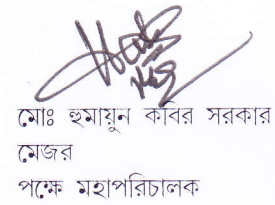 মোঃ হুমায়ুন কবির সরকার
মেজর
পক্ষে মহাপরিচালক